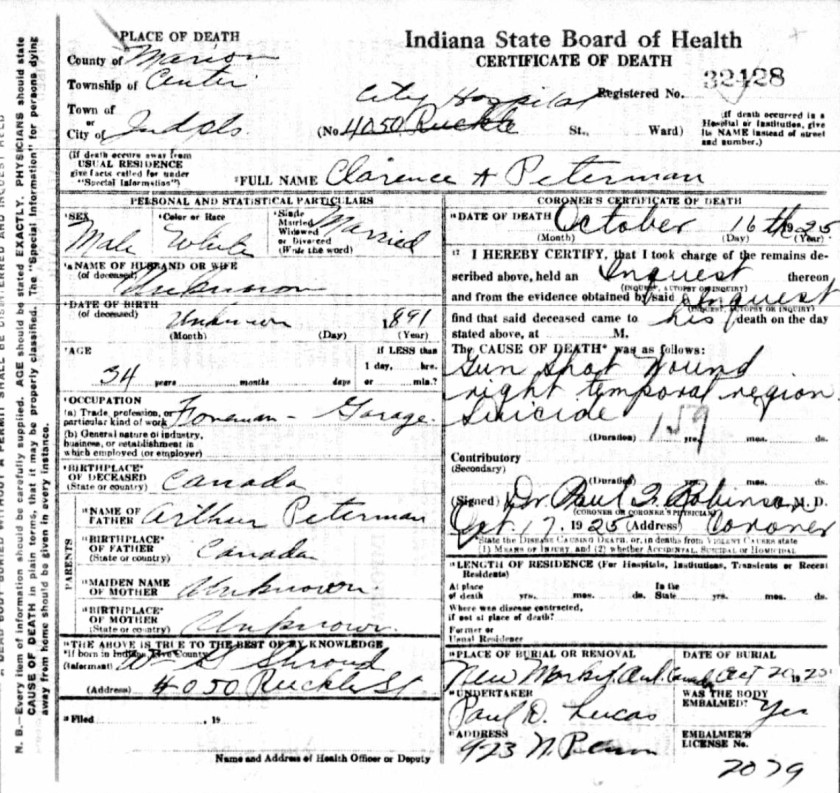 PLACE OF DEATH
County of Marion
Township of Center
Town of
or
City of Indpls.
(If death occurs away from
USUAL RESIDENCE
give facts called for under
"Special Information")
Indiana State Board of Health
CERTIFICATE OF DEATH
Registered No. 32428
City Hospital
(No. 4050 Ruckle St., Ward)
(If death occurred in a
Hospital or Institution, give
its NAME instead of street
and number.)
FULL NAME Clarence A Peterman
PERSONAL AND STATISTICAL PARTICULARS
SEX
Male
Color or Race
White
Single
Married
Widowed
or Divorced
(Write the word)
Married
NAME OF HUSBAND OR WIFE
(of deceased)
Unknown
DATE OF BIRTH
(of deceased)
Unknown 1891
(Month) (Day) (Year)
AGE
34 years months days
If LESS than
1 day, hrs.
or min.?
OCCUPATION
(a) Trade, profession, or
particular kind of work Foreman - Garage.
(b) General nature of industry,
business, or establishment in
which employed (or employer)
BIRTHPLACE
OF DECEASED
(State or country) Canada
PARENTS
NAME OF
FATHER Arthur Peterman
BIRTHPLACE
OF FATHER
(State or country) Canada
MAIDEN NAME
OF MOTHER Unknown
BIRTHPLACE
OF MOTHER
(State or country) Unknown.
THE ABOVE IS TRUE TO THE BEST OF MY KNOWLEDGE
If born in Indiana, Give County
(Informant) Shroud
(Address) 4050 Ruckle St
Filed , 19
Name and Address of Health Officer or Deputy
CORONER'S CERTIFICATE OF DEATH
DATE OF DEATH October 16th 1925
(Month) (Day) (Year)
17 I HEREBY CERTIFY, that I took charge of the remains de-
scribed above, held an Inquest thereon
(INQUEST, AUTOPSY OR INQUIRY)
and from the evidence obtained by said Inquest
(INQUEST, AUTOPSY OR INQUIRY)
find that said deceased came to his death on the day
stated above, at M.
The CAUSE OF DEATH* was as follows:
Gun Shot Wound
right temporal region.
Suicide
159
(Duration) yrs. mos. ds.
Contributory
(Secondary)
(Duration) yrs. mos. ds.
(Signed) Dr. Paul F. Robinson M. D.
(CORONER OR CORONER'S PHYSICIAN)
Oct. 17, 1925 (Address) Coroner
*State the DISEASE CAUSING DEATH, or, in deaths from VIOLENT CAUSES state
(1) MEANS OF INJURY, and (2) whether ACCIDENTAL, SUICIDAL or HOMICIDAL
LENGTH OF RESIDENCE (For Hospitals, Institutions, Transients or Recent
Residents)
At place
of death yrs. mos. ds.
In the
State yrs. mos. ds.
Where was disease contracted,
if not at place of death?
Former or
Usual Residence
PLACE OF BURIAL OR REMOVAL
New Market Ont. Canada
DATE OF BURIAL
Oct 20 1925
UNDERTAKER
Paul D. Lucas
WAS THE BODY
EMBALMED? Yes
ADDRESS
923 N.
EMBALMER'S
LICENSE No.
2079
N. B.—Every item of information should be carefully supplied. AGE should be stated EXACTLY. PHYSICIANS should state
CAUSE OF DEATH in plain terms, that it may be properly classified. The "Special Information" for persons dying
away from home should be given in every instance.